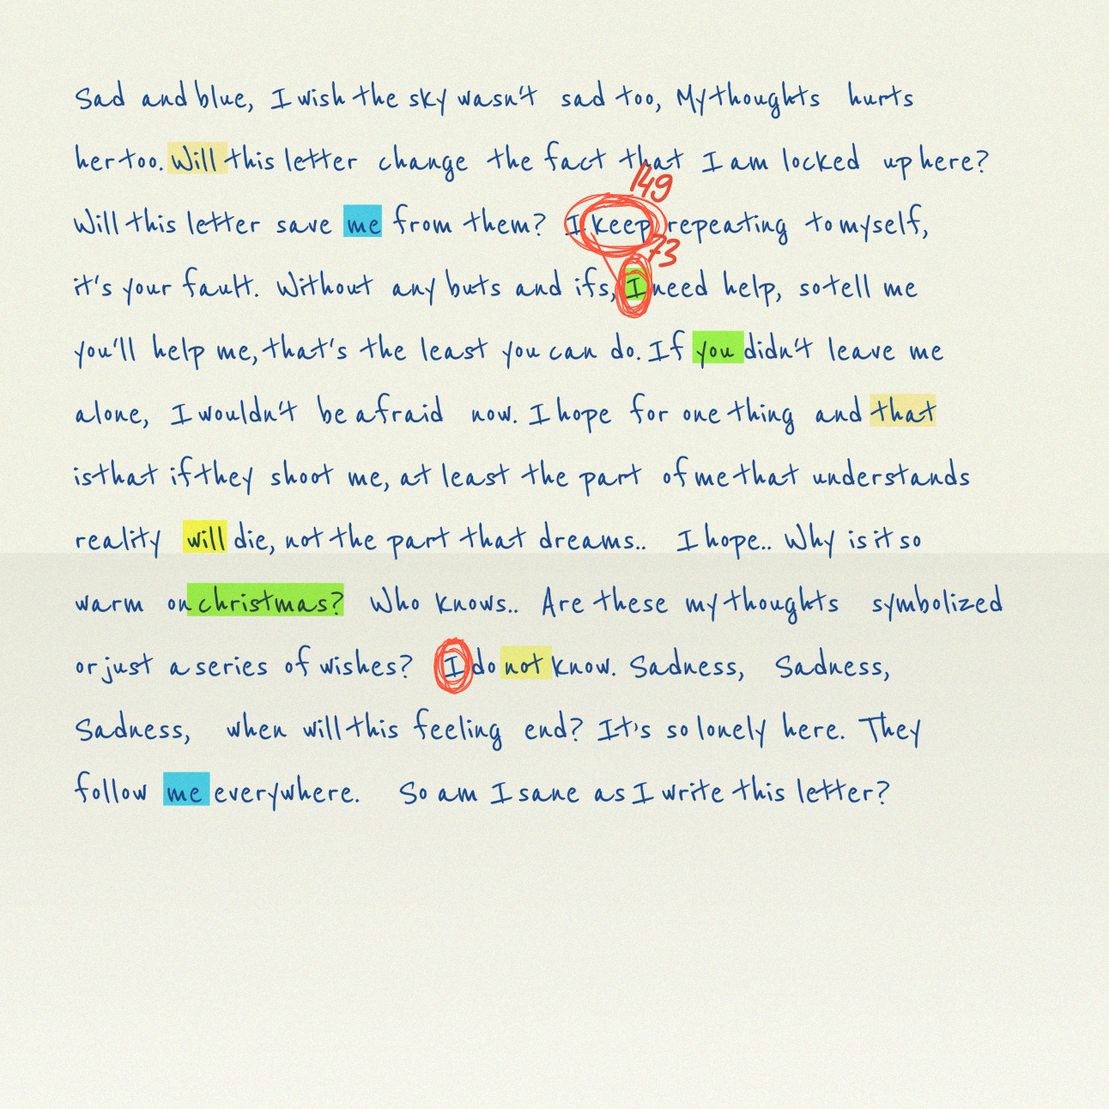 Sad and blue, I wish the sky wasn't sad too, My thoughts hurts
her too. Will this letter change the fact that I am locked up here?
149
Will this letter save me from them? I keep repeating to myself,
73
it's your fault. Without any buts and ifs, I need help, so tell me
you'll help me, that's the least you can do. If you didn't leave me
alone, I wouldn't be afraid now. I hope for one thing and that
is that if they shoot me, at least the part of me that understands
reality will die, not the part that dreams.. I hope.. Why is it so
warm on christmas? Who knows.. Are these my thoughts symbolized
or just a series of wishes? I do not know. Sadness, Sadness,
Sadness, when will this feeling end? It's so lonely here. They
follow me everywhere. So am I sane as I write this letter?